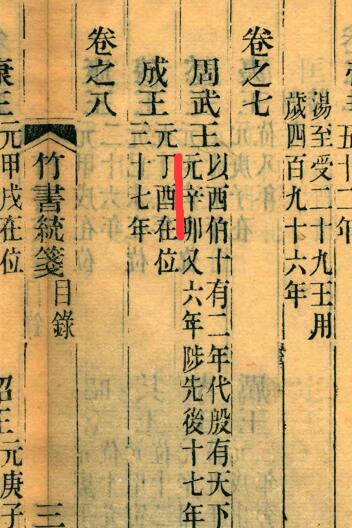 五十二年
湯至受二十九王用
歲四百九十六年
卷之七
周武王
以西伯十有二年代殷有天下
元辛卯又六年陟先後十七年
成王
元丁酉在位
三十七年
卷之八
竹書統箋
目錄
三
康王元甲戌在位
昭王元庚子